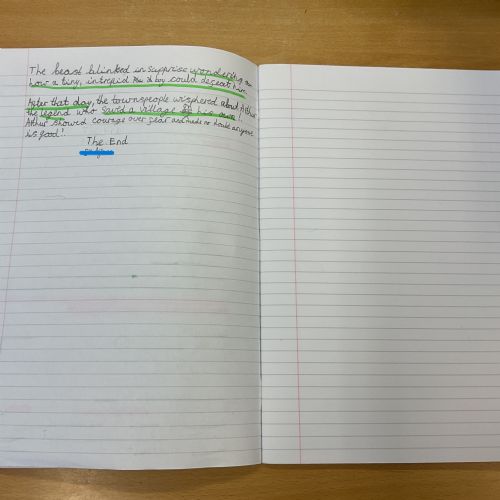 The beast blinked in supprise wondering on
how a tiny, intrepid boy could deceat him.
After that day, the townspeople wisphered about Arthur
the legend who savid a village by his own!
Arthur showed courage over fear and made no
is food!.
The End